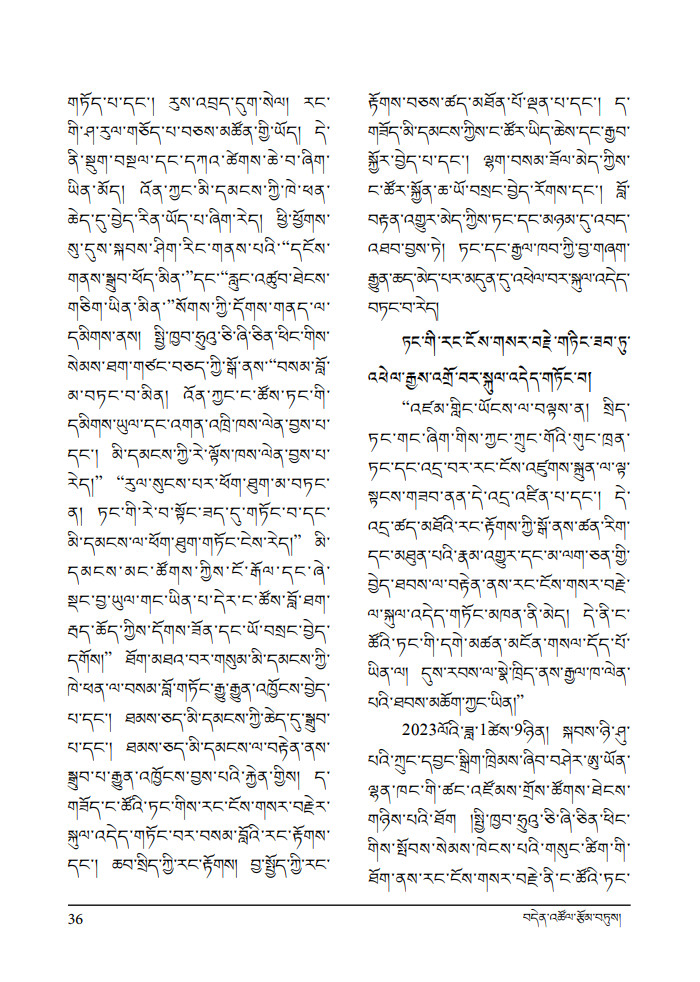 གཏོད་པ་དང་། རུས་འབྲད་དུག་སེལ། རང་
གི་ཤ་རུལ་གཅོད་པ་བཅས་མཚོན་གྱི་ཡོད། དེ་
ནི་སྡུག་བསྔལ་དང་དཀའ་ཚེགས་ཆེ་བ་ཞིག་
ཡིན་མོད། འོན་ཀྱང་མི་དམངས་ཀྱི་ཁེ་ཕན་
ཆེད་དུ་བྱེད་རིན་ཡོད་པ་ཞིག་རེད། ཕྱི་ཕྱོགས་
སུ་དུས་སྐབས་ཤིག་རིང་གནས་པའི་“དངོས་
གནས་སྒྲུབ་ཕོད་མིན་”དང་“རླུང་འཚུབ་ཐེངས་
གཅིག་ཡིན་མིན་”སོགས་ཀྱི་དོགས་གནད་ལ་
དམིགས་ནས། སྤྱི་ཁྱབ་ཧྲུའུ་ཅི་ཞི་ཅིན་ཕིང་གིས་
སེམས་ཐག་གཙང་བཅད་ཀྱི་སྒོ་ནས་“བསམ་བློ་
མ་བཏང་བ་མིན། འོན་ཀྱང་ང་ཚོས་ཏང་གི་
དམིགས་ཡུལ་དང་འགན་འཁྲི་ཁས་ལེན་བྱས་པ་
དང་། མི་དམངས་ཀྱི་རེ་ལྟོས་ཁས་ལེན་བྱས་པ་
རེད།” “རུལ་སུངས་པར་ཕོག་ཐུག་མ་བཏང་
ན། ཏང་གི་རེ་བ་སྟོང་ཟད་དུ་གཏོང་བ་དང་
མི་དམངས་ལ་ཕོག་ཐུག་གཏོང་ངེས་རེད།” མི་
དམངས་མང་ཚོགས་ཀྱིས་ངོ་རྒོལ་དང་ཞེ་
སྡང་བྱ་ཡུལ་གང་ཡིན་པ་དེར་ང་ཚོས་བློ་ཐག་
རྦད་ཆོད་ཀྱིས་དོགས་ཟོན་དང་ཡོ་བསྲང་བྱེད་
དགོས།” ཐོག་མཐའ་བར་གསུམ་མི་དམངས་ཀྱི་
ཁེ་ཕན་ལ་བསམ་བློ་གཏོང་རྒྱུ་རྒྱུན་འཁྱོངས་བྱེད་
པ་དང་། ཐམས་ཅད་མི་དམངས་ཀྱི་ཆེད་དུ་སྒྲུབ་
པ་དང་། ཐམས་ཅད་མི་དམངས་ལ་བརྟེན་ནས་
སྒྲུབ་པ་རྒྱུན་འཁྱོངས་བྱས་པའི་རྐྱེན་གྱིས། ད་
གཟོད་ང་ཚོའི་ཏང་གིས་རང་ངོས་གསར་བརྗེར་
སྐུལ་འདེད་གཏོང་བར་བསམ་བློའི་རང་རྟོགས་
དང་། ཆབ་སྲིད་ཀྱི་རང་རྟོགས། བྱ་སྤྱོད་ཀྱི་རང་
རྟོགས་བཅས་ཚད་མཐོན་པོ་ལྡན་པ་དང་། ད་
གཟོད་མི་དམངས་ཀྱིས་ང་ཚོར་ཡིད་ཆེས་དང་རྒྱབ་
སྐྱོར་བྱེད་པ་དང་། ལྷག་བསམ་ཟོལ་མེད་ཀྱིས་
ང་ཚོར་སྐྱོན་ཆ་ཡོ་བསྲང་བྱེད་རོགས་དང་། བློ་
བརྟན་འགྱུར་མེད་ཀྱིས་ཏང་དང་མཉམ་དུ་འབད་
འཐབ་བྱས་ཏེ། ཏང་དང་རྒྱལ་ཁབ་ཀྱི་བྱ་གཞག་
རྒྱུན་ཆད་མེད་པར་མདུན་དུ་འཕེལ་བར་སྐུལ་འདེད་
བཏང་བ་རེད།
ཏང་གི་རང་ངོས་གསར་བརྗེ་གཏིང་ཟབ་ཏུ་
འཕེལ་རྒྱས་འགྲོ་བར་སྐུལ་འདེད་གཏོང་བ།
“འཛམ་གླིང་ཡོངས་ལ་བལྟས་ན། སྲིད་
ཏང་གང་ཞིག་གིས་ཀྱང་ཀྲུང་གོའི་གུང་ཁྲན་
ཏང་དང་འདྲ་བར་རང་ངོས་འཛུགས་སྐྲུན་ལ་ལྟ་
སྟངས་གཟབ་ནན་དེ་འདྲ་འཛིན་པ་དང་། དེ་
འདྲ་ཚད་མཐོའི་རང་རྟོགས་ཀྱི་སྒོ་ནས་ཚན་རིག་
དང་མཐུན་པའི་རྣམ་འགྱུར་དང་མ་ལག་ཅན་གྱི་
བྱེད་ཐབས་ལ་བརྟེན་ནས་རང་ངོས་གསར་བརྗེ་
ལ་སྐུལ་འདེད་གཏོང་མཁན་ནི་མེད། དེ་ནི་ང་
ཚོའི་ཏང་གི་དགེ་མཚན་མངོན་གསལ་དོད་པོ་
ཡིན་ལ། དུས་རབས་ལ་སྣེ་ཁྲིད་ནས་རྒྱལ་ཁ་ལེན་
པའི་ཐབས་མཆོག་ཀྱང་ཡིན།”
2023ལོའི་ཟླ་1ཚེས་9ཉིན། སྐབས་ཉི་ཤུ་
པའི་ཀྲུང་དབྱང་སྒྲིག་ཁྲིམས་ཞིབ་བཤེར་ཨུ་ཡོན་
ལྷན་ཁང་གི་ཚང་འཛོམས་གྲོས་ཚོགས་ཐེངས་
གཉིས་པའི་ཐོག །སྤྱི་ཁྱབ་ཧྲུའུ་ཅི་ཞི་ཅིན་ཕིང་
གིས་སྤོབས་སེམས་ཁེངས་པའི་གསུང་ཚིག་གི་
ཐོག་ནས་རང་ངོས་གསར་བརྗེ་ནི་ང་ཚོའི་ཏང་
36
བདེན་འཚོལ་རྩོམ་བཏུས།